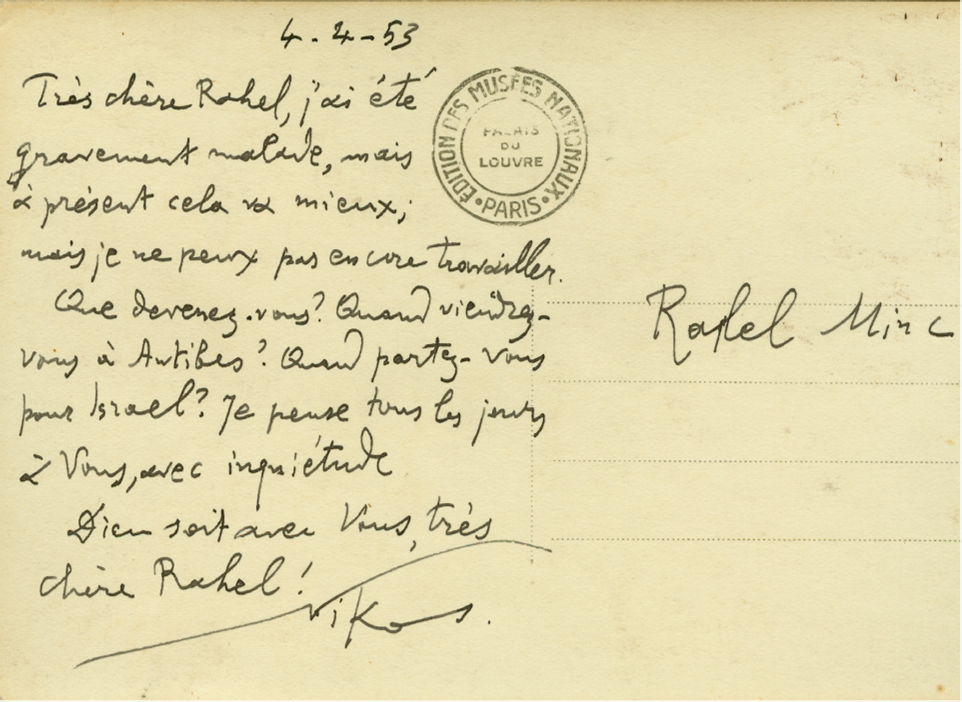 4-4-53
Très chère Rahel, j'ai été
gravement malade, mais
à présent cela va mieux;
mais je ne peux pas encore travailler.
Que devenez-vous? Quand viendrez-
vous à Antibes? Quand partez-vous
pour Israel? Je pense tous les jours
à Vous, avec inquiétude
Dieu soit avec Vous, très
chère Rahel!
Nikos.
ÉDITION DES MUSÉES NATIONAUX
• PARIS •
PALAIS
DU
LOUVRE
Rahel Minc